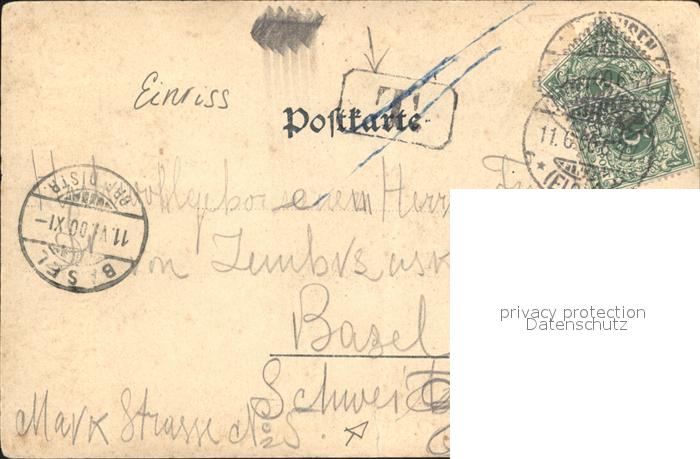 Einriss
T
Postkarte
Hochwohlgeborenem Herrn
11.6.
5
BRF. DISTR.
11.VI.00 XI-
BASEL
von
privacy protection
Datenschutz
Basel
Schweiz
Mark Strasse No